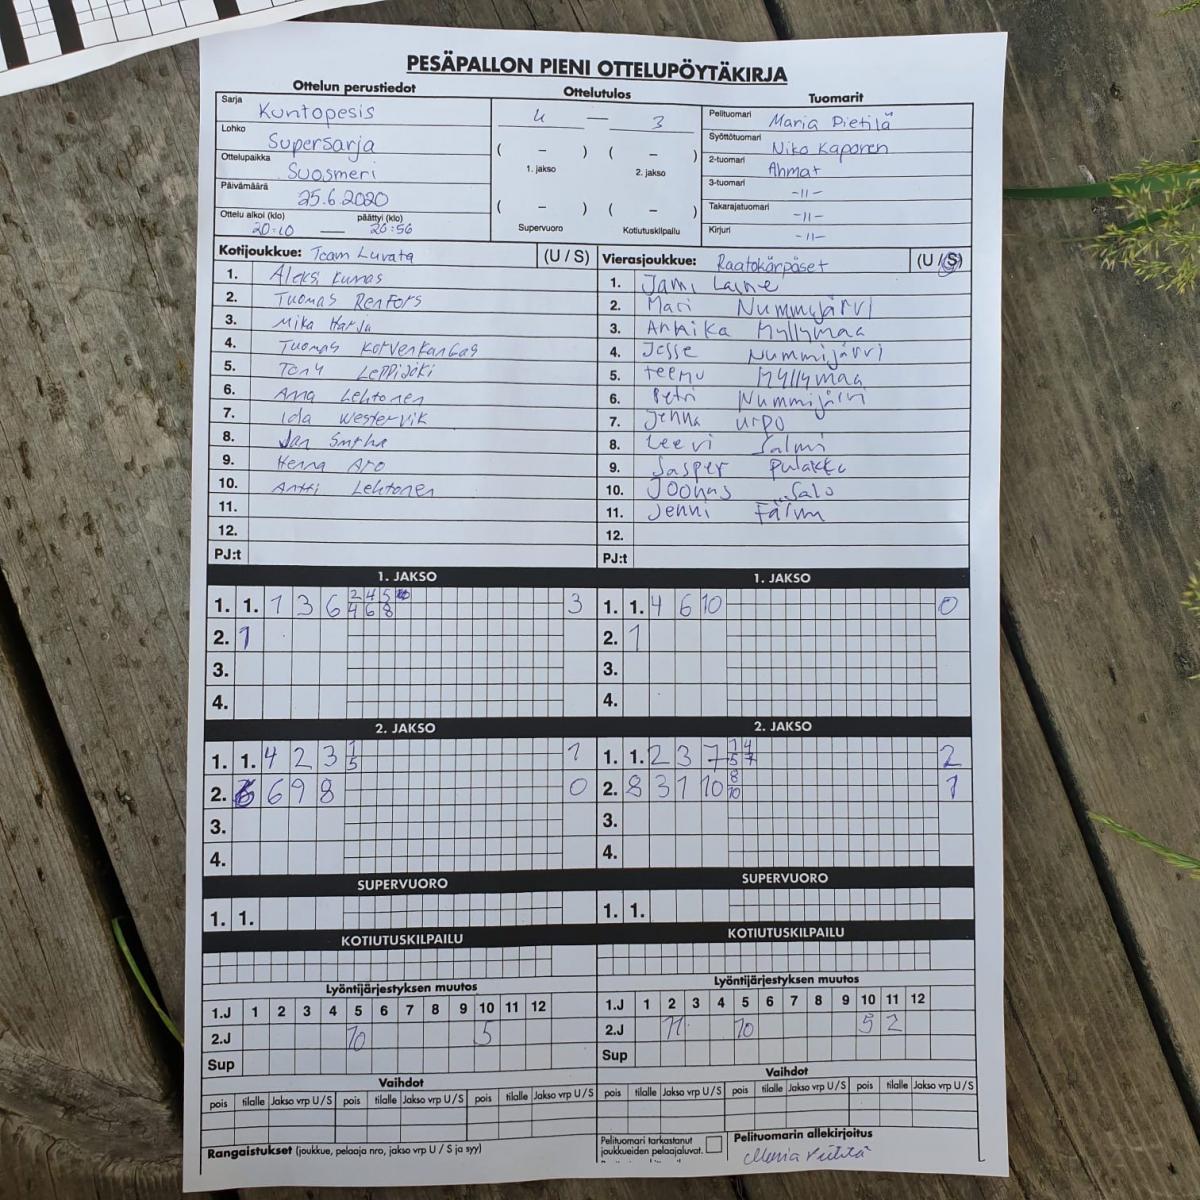 PESÄPALLON PIENI OTTELUPÖYTÄKIRJA
Ottelun perustiedot
Ottelutulos
Tuomarit
Sarja Kuntopesis
Lohko Supersarja
Ottelupaikka Suosmeri
Päivämäärä 25.6.2020
Ottelu alkoi (klo) päättyi (klo)
20:10 — 20:56
4 — 3
( - ) ( - )
1. jakso 2. jakso
( - ) ( - )
Supervuoro Kotiutuskilpailu
Pelituomari Maria Pietilä
Syöttötuomari Niko Kaponen
2-tuomari Ahmat
3-tuomari -11-
Takarajatuomari -11-
Kirjuri -11-
Kotijoukkue: Team Luvata (U / S)
1. Aleksi Kunas
2. Tuomas Renfors
3. Mika Harju
4. Tuomas Korvenkangas
5. Tony Leppijoki
6. Anna Lehtonen
7. Ida Westervik
8. Jan
9. Henna Aro
10. Antti Lehtonen
11.
12.
PJ:t
Vierasjoukkue: Raatokärpäset (U / S)
1. Jami Laine
2. Mari Nummijärvi
3. Annika Myllymaa
4. Jesse Nummijärvi
5. teemu Myllymaa
6. Petri Nummijärvi
7. Jenna Urpo
8. Leevi Salmi
9. Jasper Pulakka
10. Joonas Salo
11. Jenni
12.
PJ:t
1. JAKSO 1. JAKSO
1. 1. 1 3 6 2 4 5 3
4 6 8
2. 1
3.
4.
1. 1. 4 6 10 0
2. 1
3.
4.
2. JAKSO 2. JAKSO
1. 1. 4 2 3 1 1
5
2. 6 9 8 0
3.
4.
1. 1. 2 3 7 1 4 2
5 7
2. 8 3 1 10 8 1
10
3.
4.
SUPERVUORO SUPERVUORO
1. 1. 1. 1.
KOTIUTUSKILPAILU KOTIUTUSKILPAILU
Lyöntijärjestyksen muutos Lyöntijärjestyksen muutos
1.J 1 2 3 4 5 6 7 8 9 10 11 12
2.J 10 5
Sup
1.J 1 2 3 4 5 6 7 8 9 10 11 12
2.J 11 10 5 2
Sup
Vaihdot Vaihdot
pois tilalle Jakso vrp U / S pois tilalle Jakso vrp U / S pois tilalle Jakso vrp U / S
pois tilalle Jakso vrp U / S pois tilalle Jakso vrp U / S pois tilalle Jakso vrp U / S
Rangaistukset (joukkue, pelaaja nro, jakso vrp U / S ja syy)
Pelituomari tarkastanut
joukkueiden pelaajaluvat.
Pelituomarin allekirjoitus
Maria Pietilä